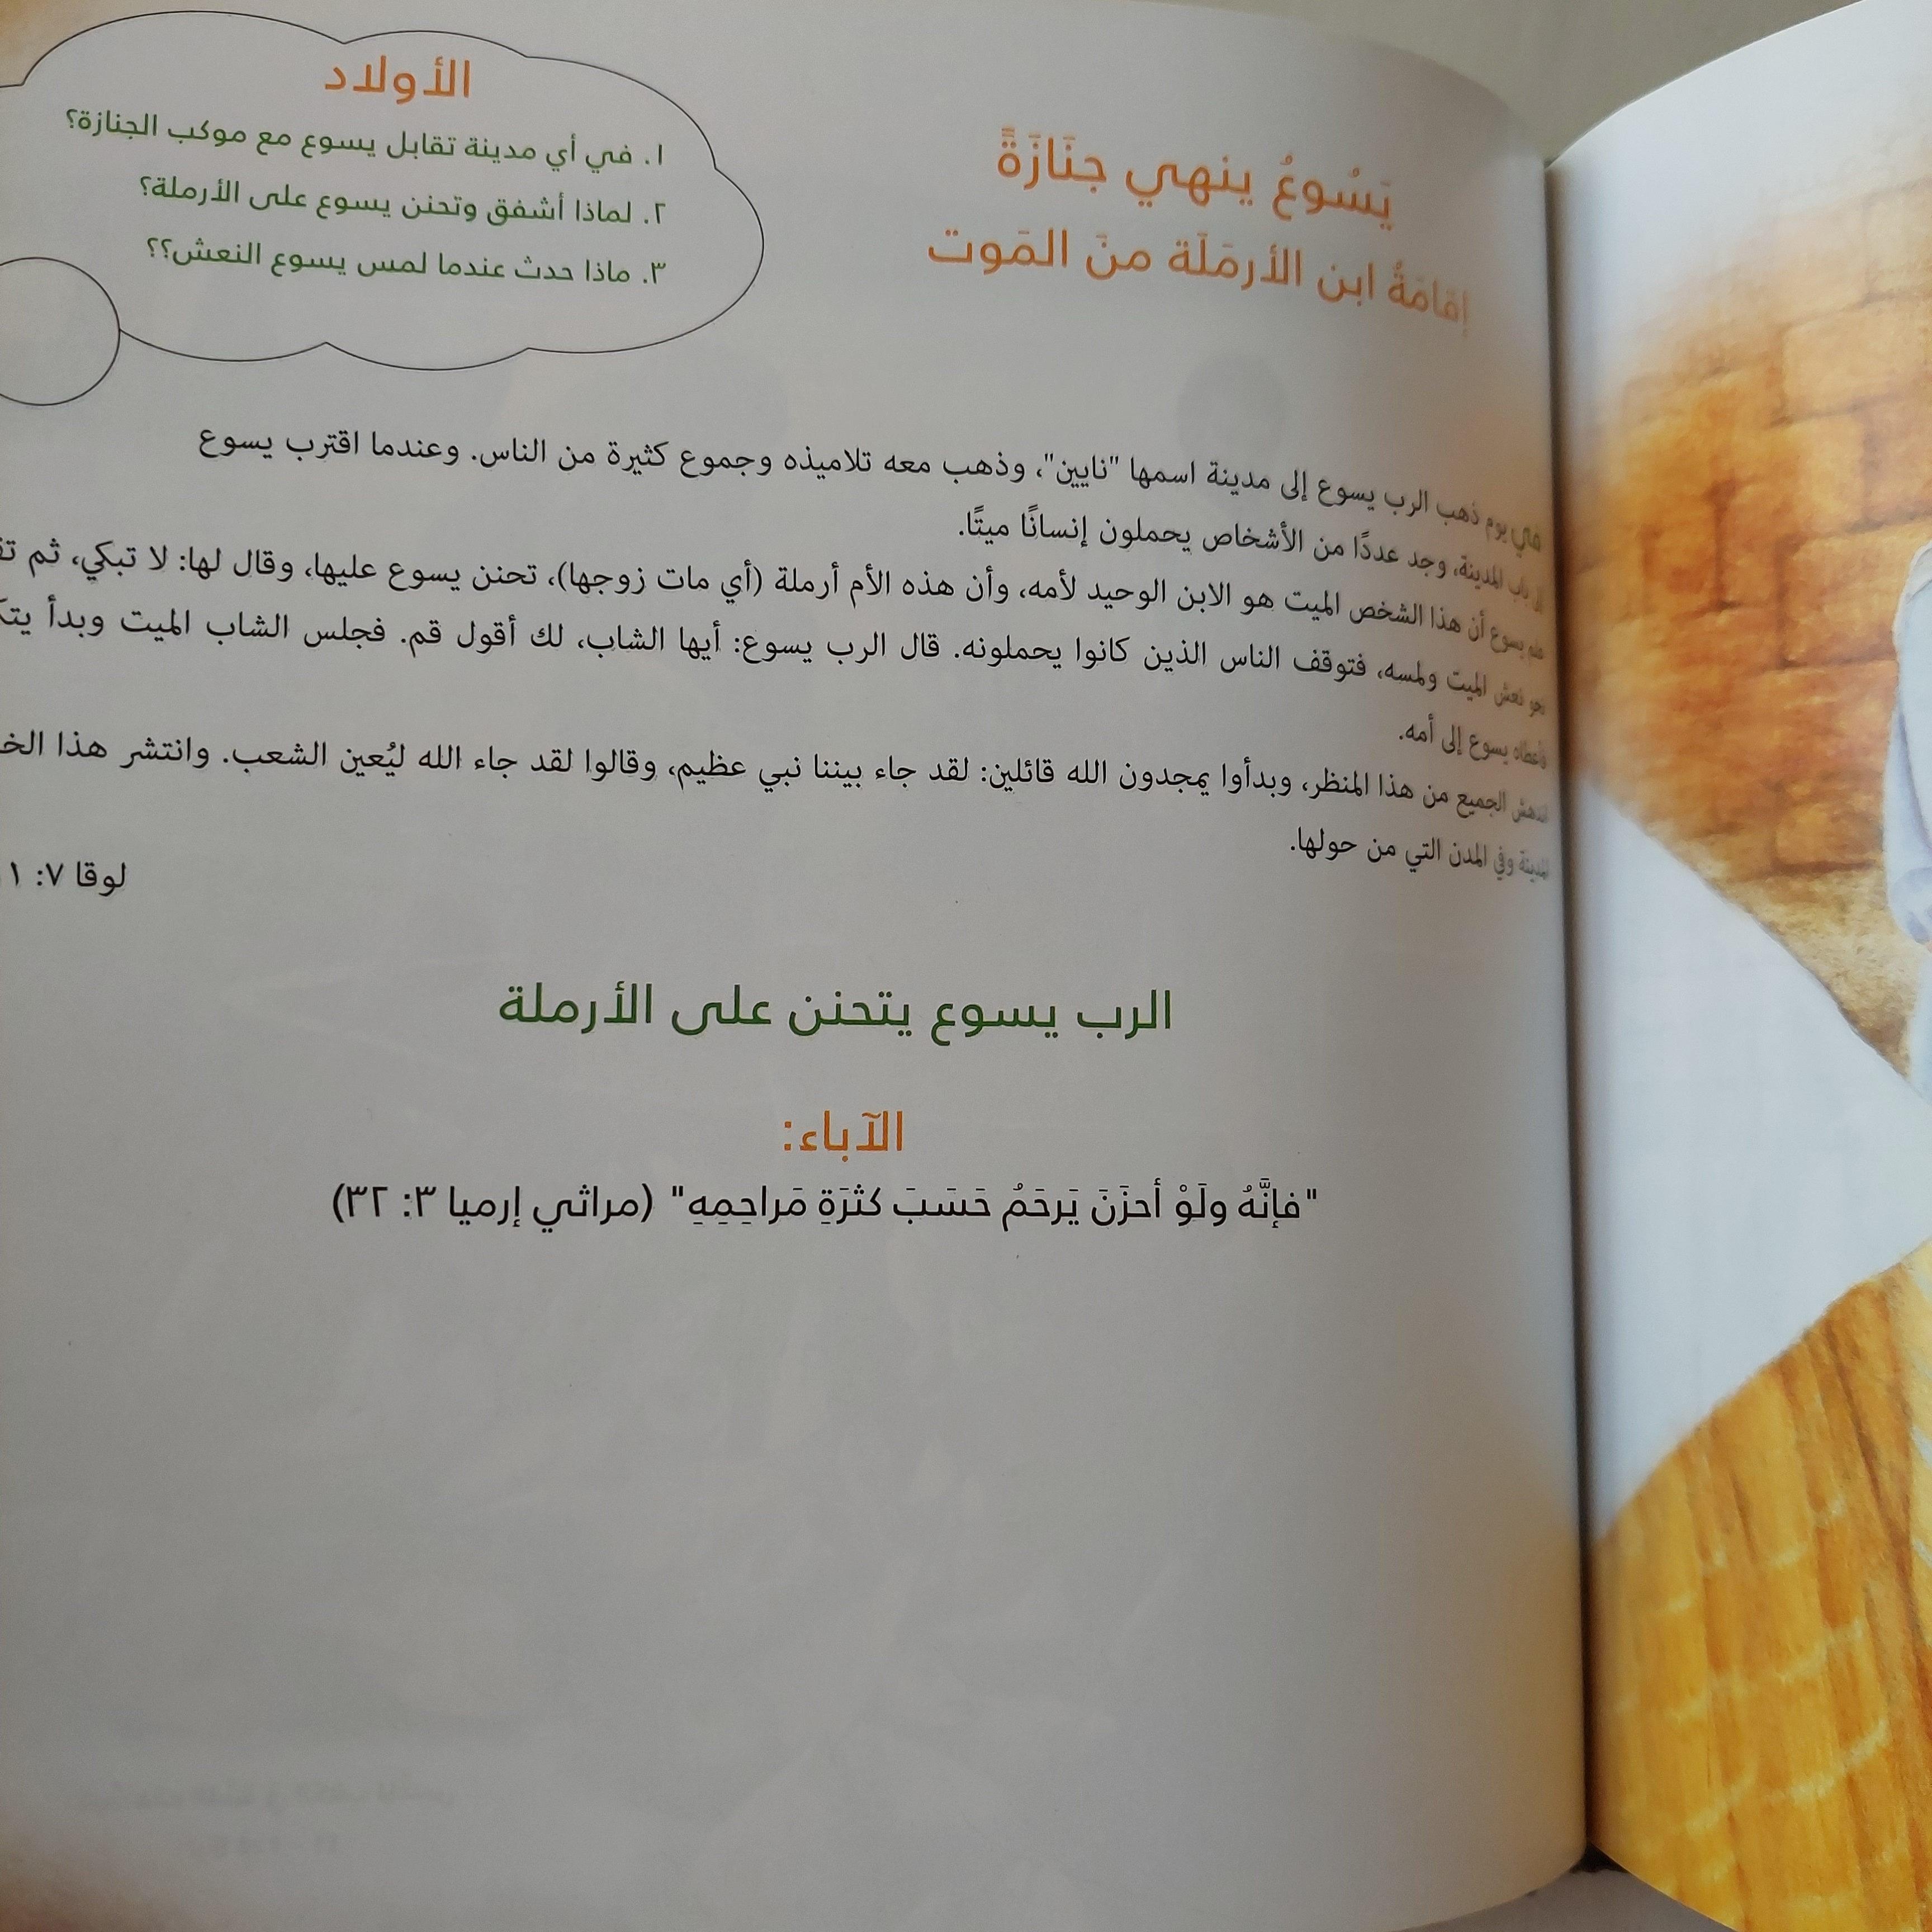 يَسُوعُ ينهي جنَازَةً
إقَامَةُ ابن الأرمَلَة منَ المَوت
الأولاد
١. في أي مدينة تقابل يسوع مع موكب الجنازة؟
٢. لماذا أشفق وتحنن يسوع على الأرملة؟
٣. ماذا حدث عندما لمس يسوع النعش؟؟
في يوم ذهب الرب يسوع إلى مدينة اسمها "نايين"، وذهب معه تلاميذه وجموع كثيرة من الناس. وعندما اقترب يسوع
باب المدينة، وجد عددًا من الأشخاص يحملون إنسانًا ميتًا.
علم يسوع أن هذا الشخص الميت هو الابن الوحيد لأمه، وأن هذه الأم أرملة (أي مات زوجها)، تحنن يسوع عليها، وقال لها: لا تبكي، ثم
نحو نعش الميت ولمسه، فتوقف الناس الذين كانوا يحملونه. قال الرب يسوع: أيها الشاب، لك أقول قم. فجلس الشاب الميت وبدأ
فأعطاه يسوع إلى أمه.
اندهش الجميع من هذا المنظر، وبدأوا يمجدون الله قائلين: لقد جاء بيننا نبي عظيم، وقالوا لقد جاء الله ليُعين الشعب. وانتشر هذا
المدينة وفي المدن التي من حولها.
لوقا ٧: ١
الرب يسوع يتحنن على الأرملة
الآباء:
"فإنَّهُ ولَوْ أحزَنَ يَرحَمُ حَسَبَ كثرَةِ مَراحِمِهِ" (مراثي إرميا ٣: ٣٢)